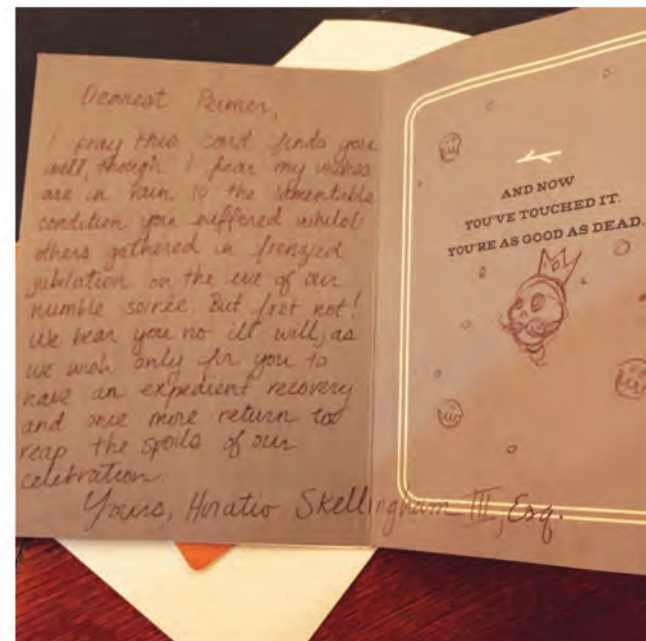 Dearest Peimer,
I pray this card finds you
well, though I fear my wishes
are in vain to the lamentable
condition you suffered whilst
others gathered in frenzied
jubilation on the eve of our
humble soirée. But fret not!
We bear you no ill will, as
we wish only for you to
have an expedient recovery
and once more return to
reap the spoils of our
celebration.
Yours, Horatio Skellingham III, Esq.
AND NOW
YOU'VE TOUCHED IT.
YOU'RE AS GOOD AS DEAD.